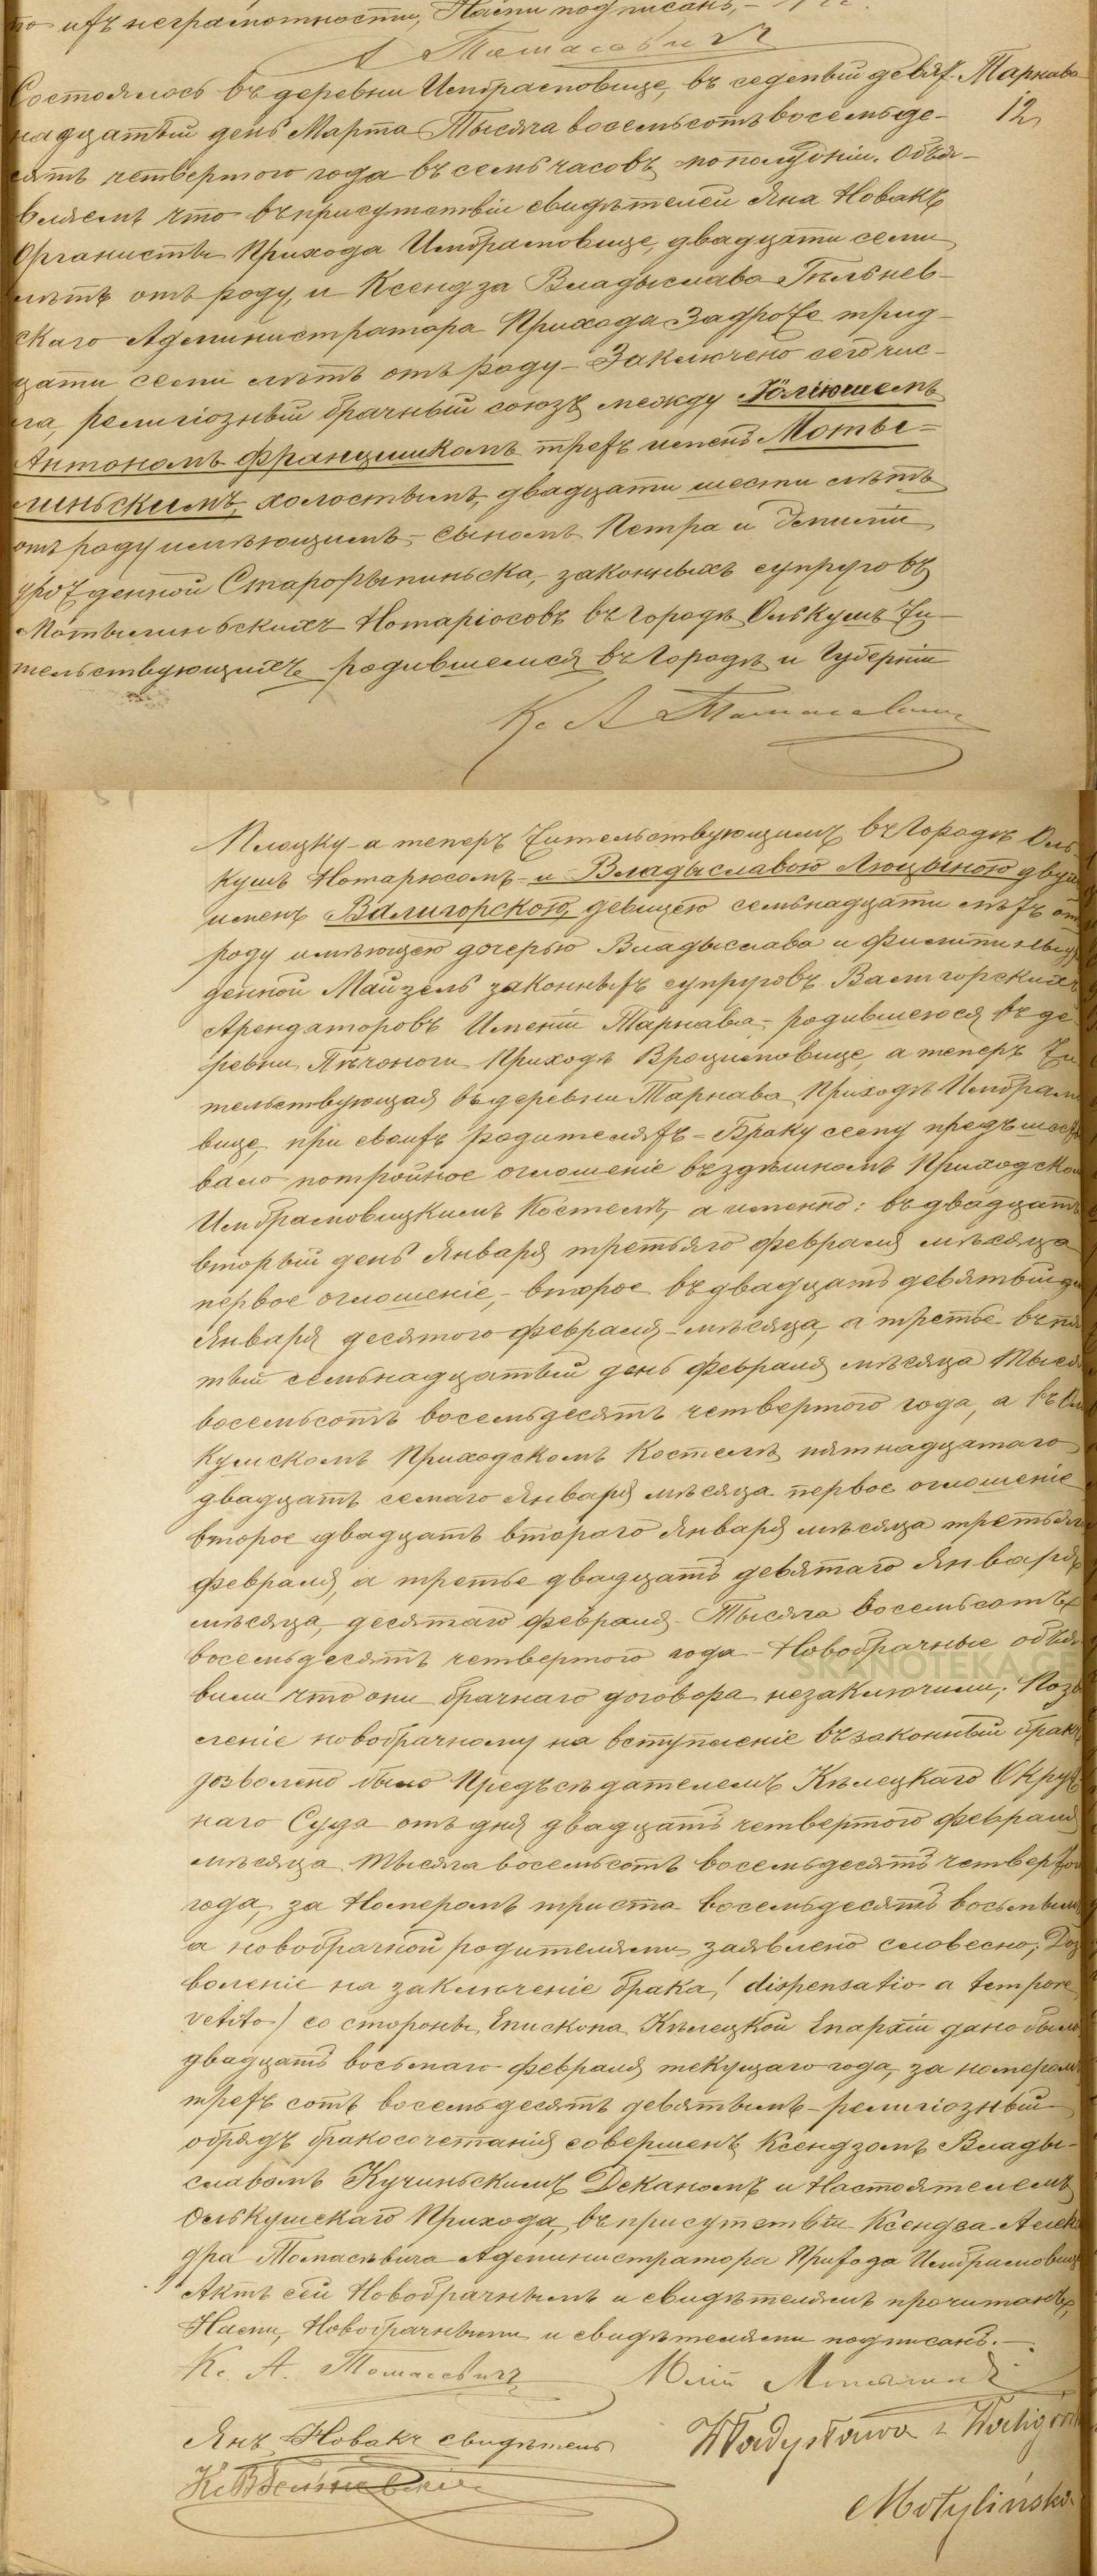 по изъ неграмотности, Нами подписанъ, –
А Томасевичъ
Состоялось въ деревни Имбрамовице, въ седмый девят- Тарнава
надцатый день Марта Тысяча восемьсотъ восемьде- 12
сятъ четвертого года въ семь часовъ пополудніи. Объя-
вляемъ что въ присутствіи свидѣтелей Яна Новакъ
Органисты Прихода Имбрамовице, двадцати семи
лѣтъ отъ роду, и Ксендза Владыслава Бѣльнев-
скаго Администратора Прихода Задроже трид-
цати семи лѣтъ отъ роду – Заключено сего чис-
ла, религіозный брачный союзъ между Юліюшемъ
Антономъ Францишкомъ трехъ именъ Моты-
линьскимъ, холостымъ, двадцати шести лѣтъ
отъ роду имѣющимъ – сыномъ Петра и Эмиліи
урожденной Старорыпиньска, законныхъ супруговъ
Мотылиньскихъ Нотаріосовъ въ Городѣ Олькушѣ жи-
тельствующихъ родившемся въ Городѣ и Губерніи
Кс А Томасевичъ
Плоцку – а теперъ жительствующимъ въ Городѣ Оль-
кушѣ Нотарюсомъ – и Владыславою Люцыною двухъ
именъ Валигорскою, девицею семьнадцати лѣтъ отъ
роду имѣющею дочерью Владыслава и Филипины
денной Майзель законныхъ супруговъ Валигорскихъ
Арендаторовъ Именіи Тарнава, – родившеюся въ де-
ревни Пѣчоноги Приходѣ Вроцимовице, а теперъ жи-
тельствующая въ деревни Тарнава Приходѣ Имбрамо
вице, при своихъ родителяхъ – Браку сему предъшест
вало потройное оглошеніе въ здѣшномъ Приходском
Имбрамовицкимъ Костелѣ, а именно: въ двадцать
вторый день Января третьяго февраля мѣсяца
первое оглошеніе, – второе въ двадцать девятый д
Января десятого февраля – мѣсяца, а третье въ пя
тый семьнадцатый день февраля мѣсяца Тысяч
восемьсотъ восемьдесятъ четвертого года, а въ Оль
кушскомъ Приходскомъ Костелѣ пятнадцатаго
двадцать семаго Января мѣсяца первое оглошеніе
второе двадцать втораго Января мѣсяца третьяго
февраля, а третье двадцать девятаго Января
мѣсяца, десятаго февраля – Тысяча восемьсотъ
восемьдесятъ четвертого года – Новобрачные объя
вили что они брачнаго договора незаключили; Позво
леніе новобрачному на вступленіе въ законный бракъ
дозволено было Предъсѣдателемъ Кѣлецкаго Окруж
наго Суда отъ дня двадцать четвертого февраля
мѣсяца Тысяча восемьсотъ восемьдесятъ четвертого
года, за Номеромъ триста восемьдесятъ восьмымъ
а новобрачной родителями заявлено словесно; Доз
воленіе на заключеніе брака / dispensatio a tempore
vetito / со стороны Епископа Кѣлецкой Епархіи дано было
двадцать восьмаго февраля текущаго года, за номеромъ
трехъ сотъ восемьдесятъ девятымъ – религіозный
обрядъ бракосочетанія совершенъ Ксендзомъ Влады-
славомъ Кучиньскимъ Деканомъ и Настоятелемъ
Олькушскаго Прихода, въ присутствіи Ксендза Алекс
дра Томасѣвича Администратора Прихода Имбрамовице
Актъ сей Новобрачнымъ и свидѣтелямъ прочитанъ,
Нами, Новобрачными и свидѣтелями подписанъ. –
Кс. А. Томасевичъ
Янъ Новакъ свидѣтель
Władysława z Waligórs
Motylińska
SKANOTEKA.GE